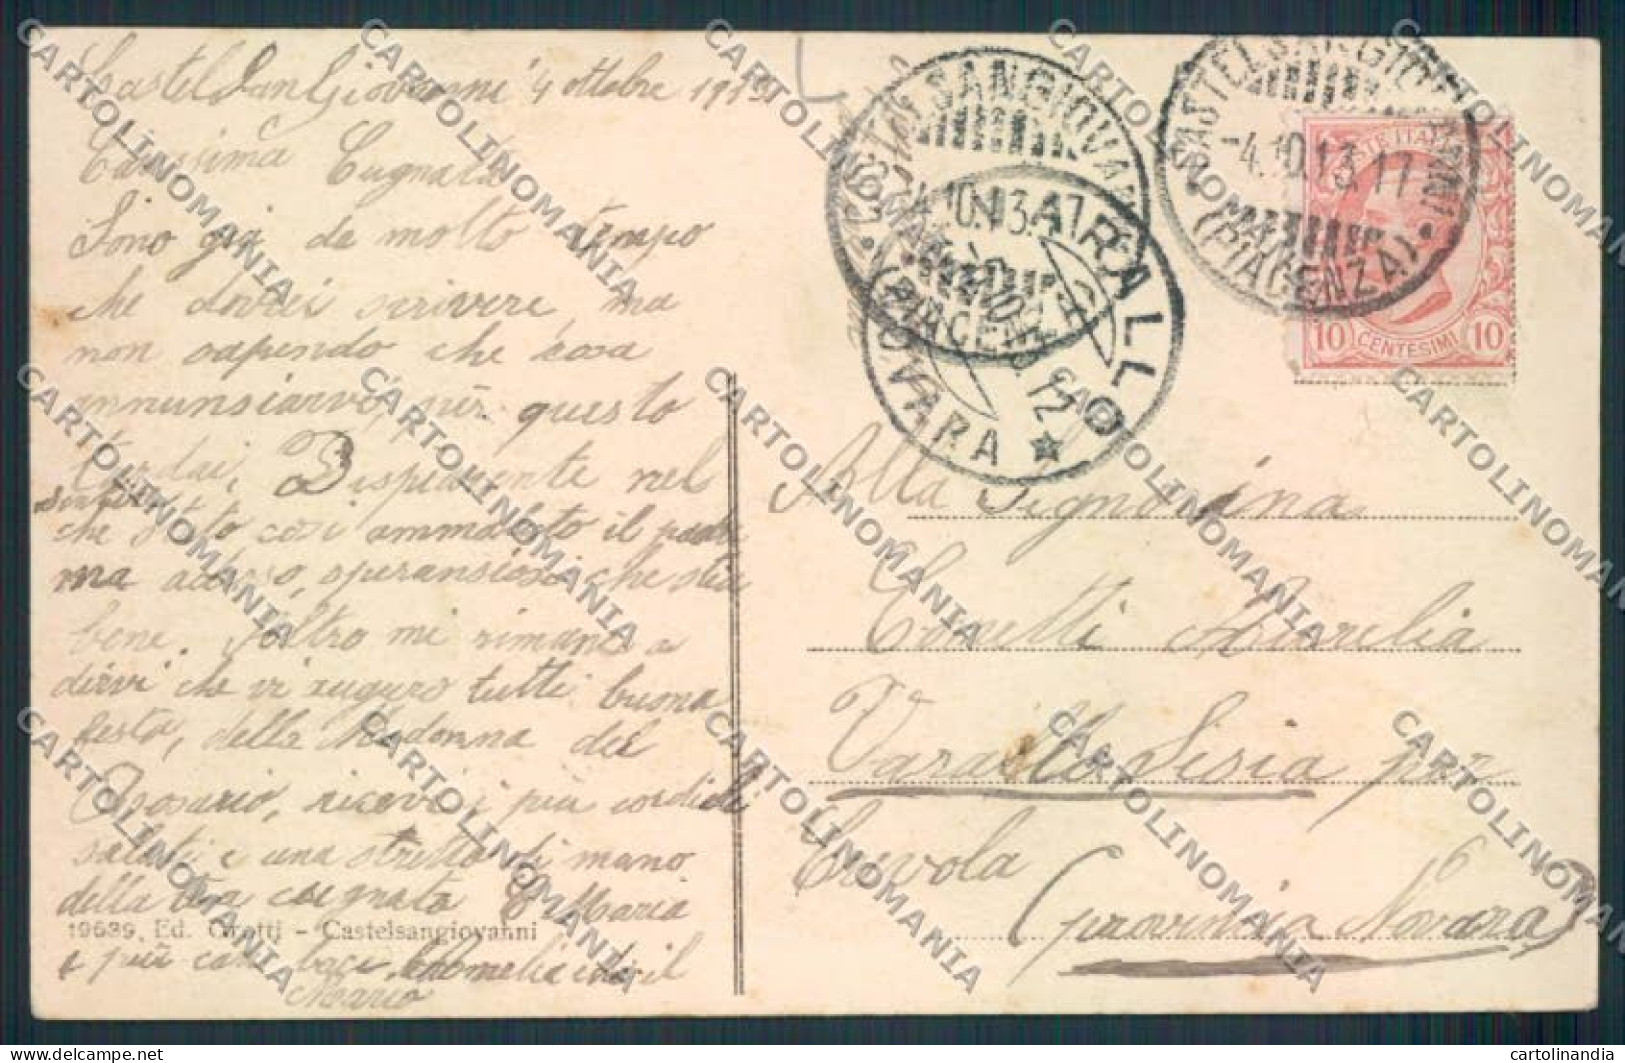 Castel San Giovanni 4 ottobre 1913
Carissima Cugnata
Sono già da molto tempo
che dovrei scrivere ma
non sapendo che cosa
annunsiarvi per questo
tardai, Dispiacente nel
sentire
che stato così ammalato il
ma adesso, speransiosi che stia
bene. Altro mi rimane a
dirvi che vi auguro tutti buona
festa, della Madonna del
Rosario, ricevi i più cordiali
saluti e una stretta di mano
della tua cognata Maria
19639. Ed. Grotti - Castelsangiovanni
e più cari baci
Mario
CASTEL SANGIOVANNI
4.10.13.17
(PIACENZA)
VARALLO
12
NOVARA
CASTELSANGIOVANNI
-4.10.13.17
(PIACENZA)
POSTE ITALIANE
10 CENTESIMI 10
Alla Signorina
Aurelia
Varallo Sesia per
Crevola
(provincia Novara)
CARTOLINOMANIA
cartolinandia
delcampe.net